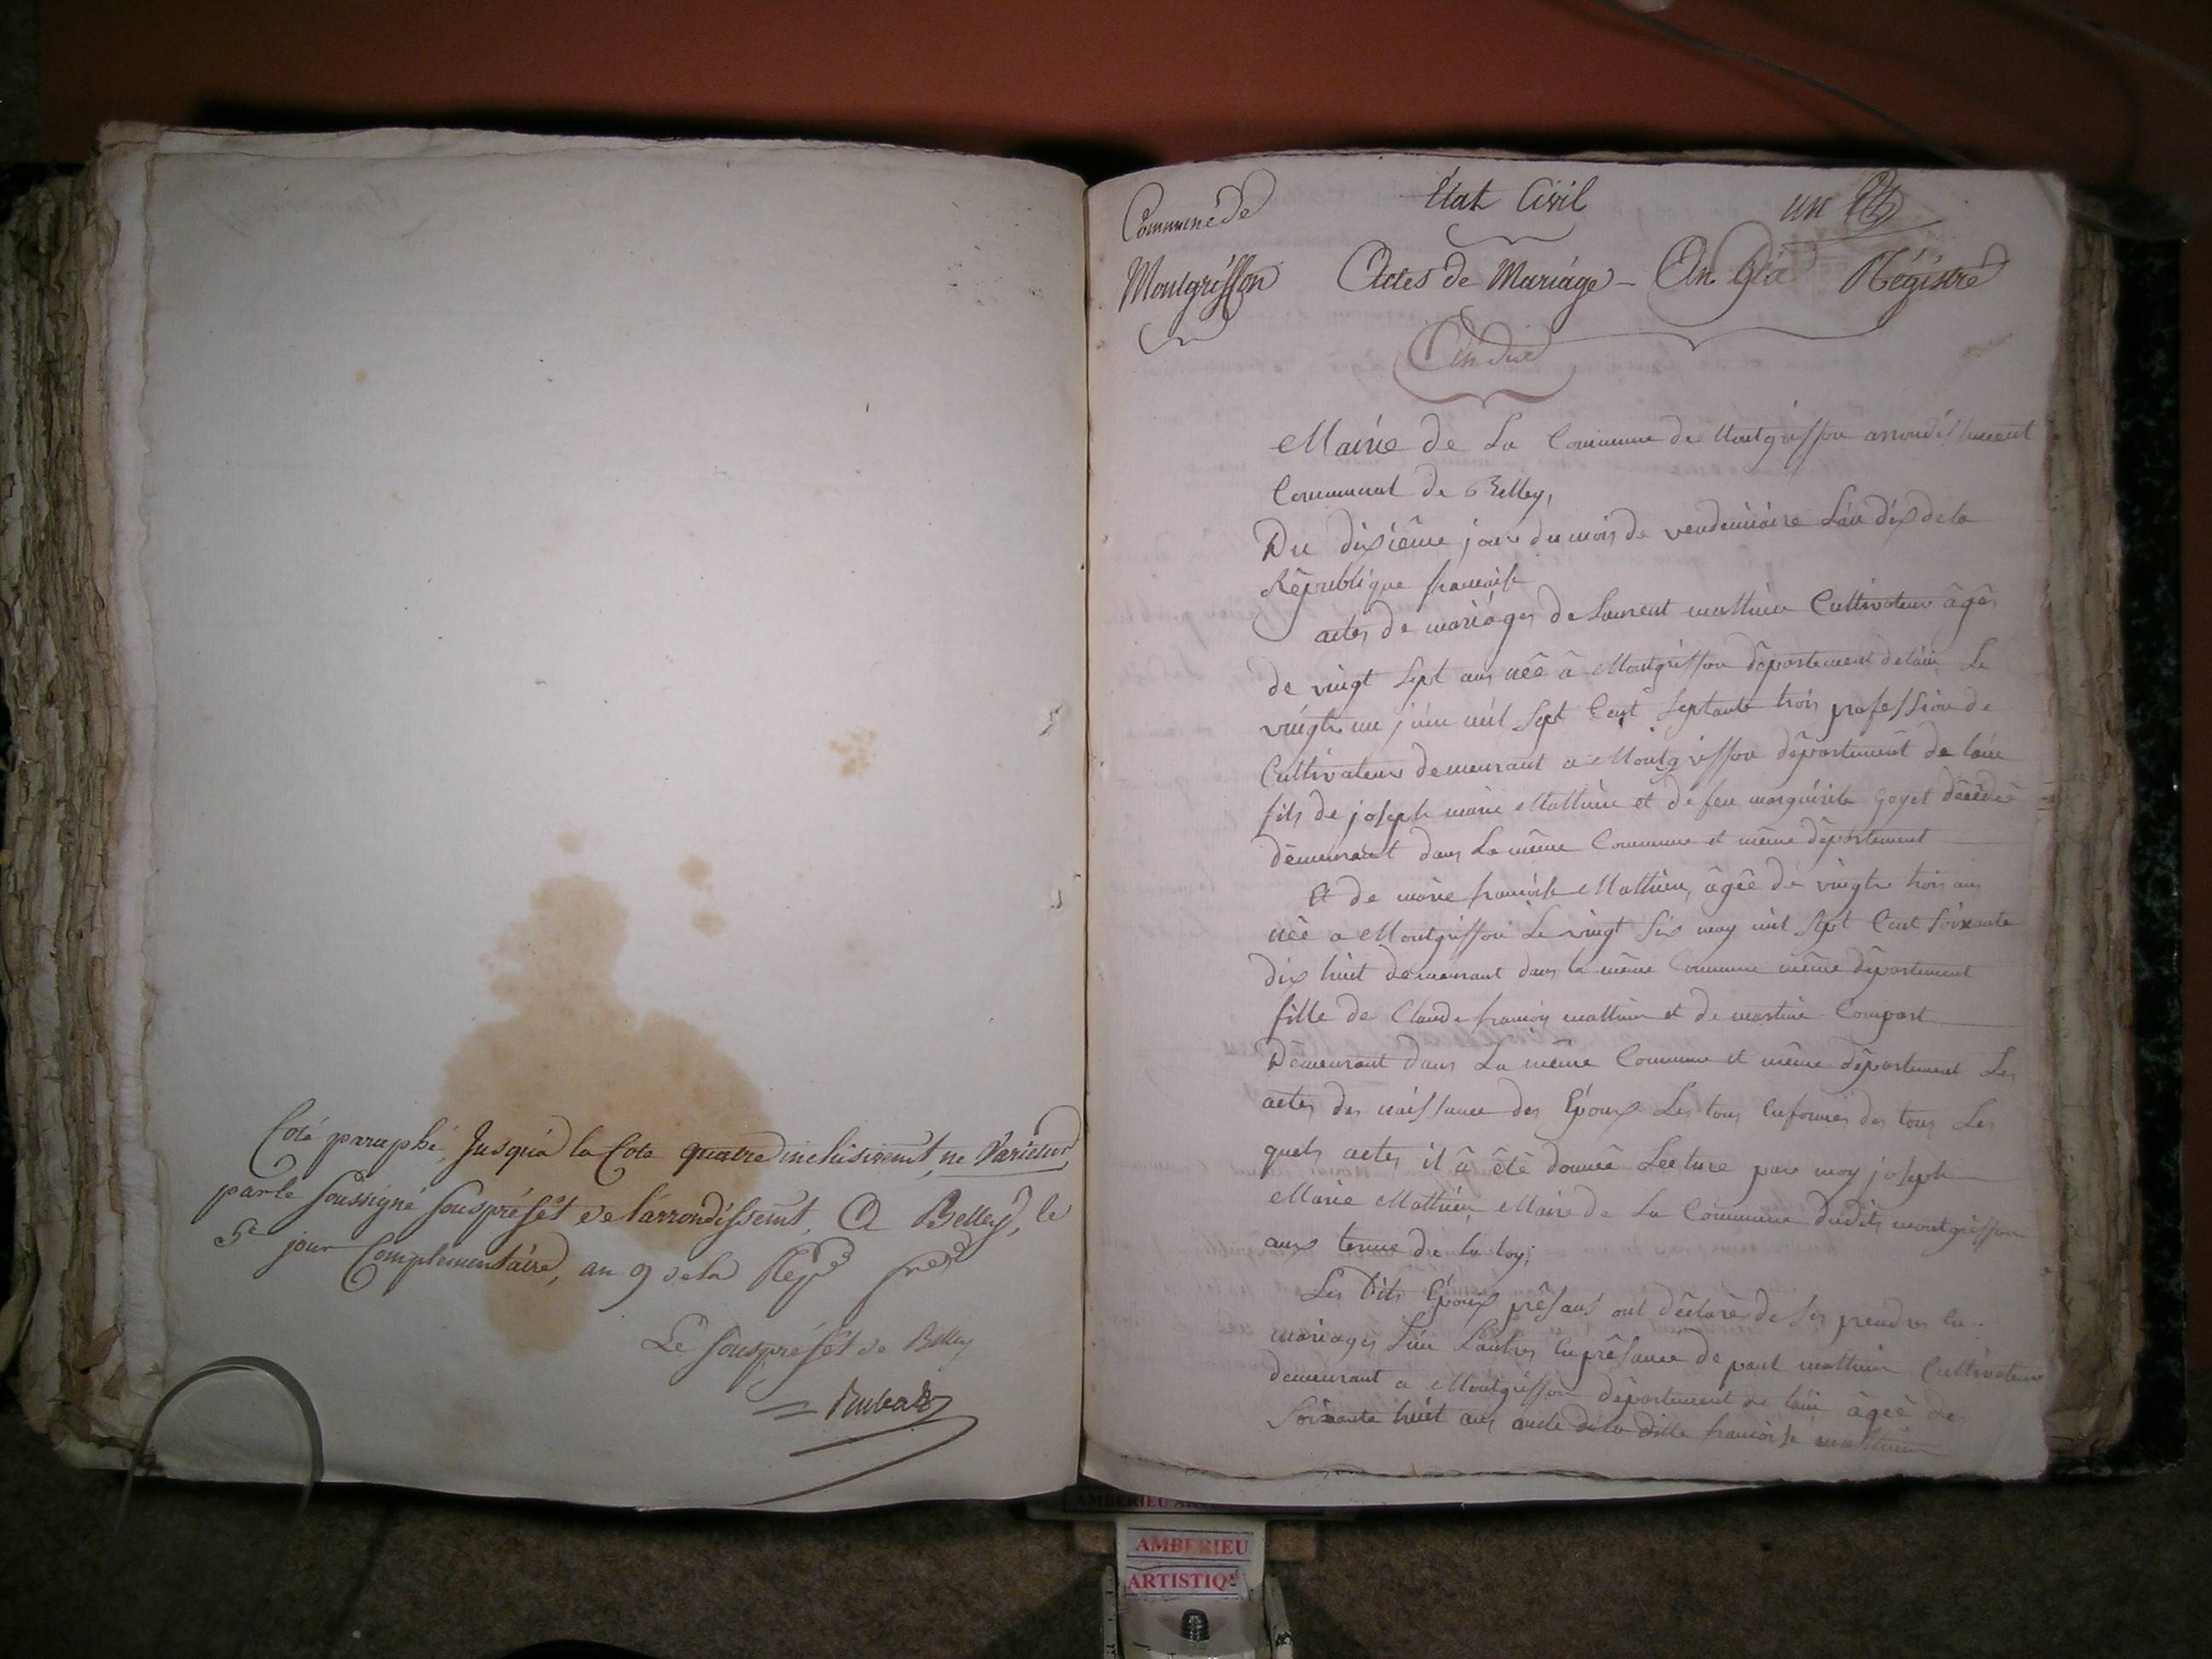 Coté paraphé, Jusqu'à la Cote quatre inclusivemt, ne Varietur
par le soussigné souspréfét de l'arrondissemt, A Belley, le
5e jour Complémentaire, an 9 de la Repe
Le souspréfét de Belley
Commune de
Montgriffon
Etat Civil
un
Actes de Mariage - An Dix Régistre
An dix
Mairie de La Commune de Montgriffon arrondissement
Communal de Belley,
Du dixiême jour du mois de vendemiaire L'an dix de la
Rêpublique françoise
actes de mariages de Laurent mathieu Cultivateur âgês
de vingt sept ans nêê â Montgriffon dêpartement de l'ain Le
vingts un juin mil sept Cent septante trois profession de
Cultivateur demeurant a Montgriffon dêpartement de l'ain
fils de joseph marie Mathieu et de feu marguérite goyet dêcêdêe
dêmeurant dans La même Commune et même dêpartement
Et de marie françoise Mathieu, âgêe de vingts trois ans
nêê a Montgriffon Le vingt six may mil sept Cent soixante
dix huit demeurant dans la même Commune même dêpartement
fille de Claude françois mathieu et de martine Compart
Demeurant dans La même Commune et même dêpartement Les
actes des naissance des Epoux Les tous en formes des tous Les
quels actes il â êtê donnêê Lecture par moy joseph
Marie Mathieu Maire de La Commune dudits montgriffon
aux terme de la loy;
Les Dits Epoux prêsans ont dêclarê de ses prendres en
mariages L'un L'autres En prêsance de paul mathieu Cultivateur
demeurant a Montgriffon dêpartement de l'ain âgeê des
soixante huit ans oncle de la ditte françoise mathieu
AMBERIEU
AMBERIEU
ARTISTIQUE